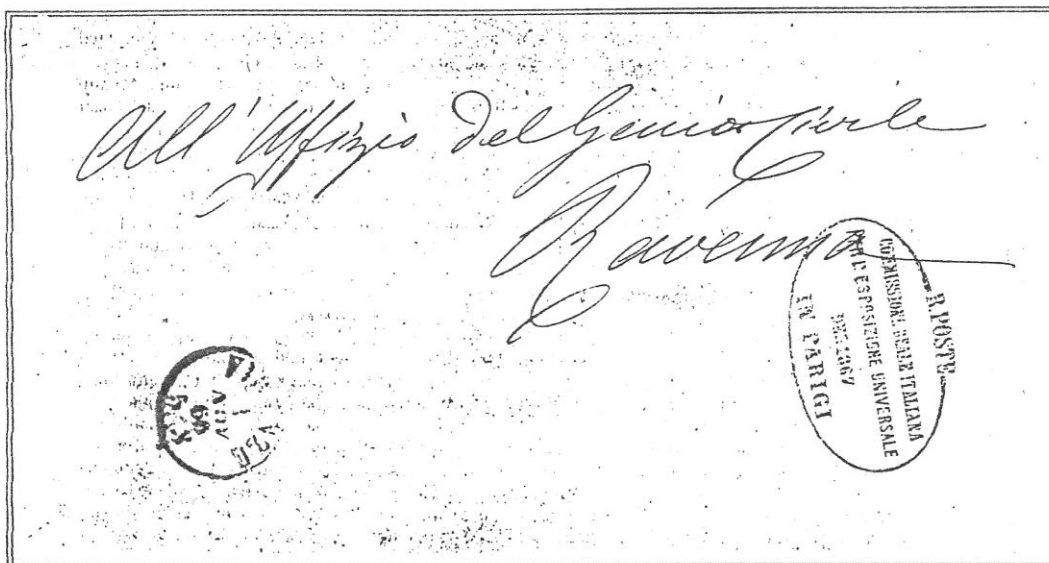 All' Uffizio del Genio Civile
Ravenna
R. POSTE
COMMISSIONE REALE ITALIANA
PER L'ESPOSIZIONE UNIVERSALE
DEL 1867
IN PARIGI
66